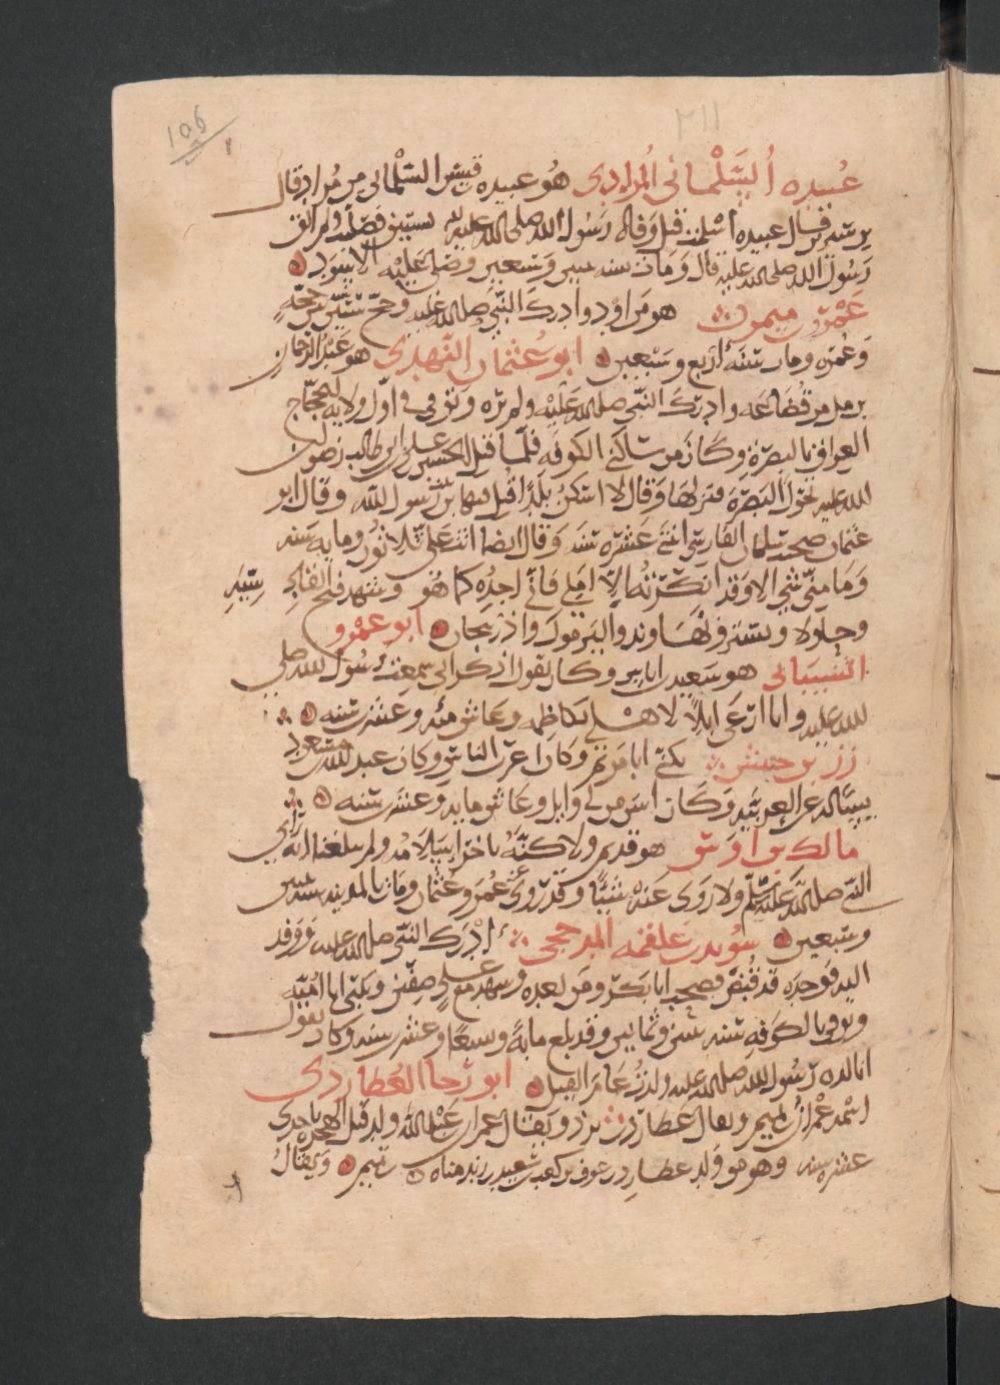 ١٥٦
٢١١
عبيده السلماني المرادي هو عبيده بن قيس السلماني من مراد قال
بن سيرين قال عبيده اسلمت قبل وفاه رسول الله صلى الله عليه بسنتين وصليت ولم الق
رسول الله صلى الله عليه قال ومات سنه اثنين وسبعين وصلى عليه الاسود
عمرو بن ميمون هو من اود وادرك النبي صلى الله عليه وحج ستين حجة
وعمره ومات سنة اربع وسبعين ابو عثمان النهدي هو عبد الرحمان
بن مل من قضاعه وادرك النبي صلى الله عليه ولم يره وتوفي في اول ولايه الحجاج
العراق بالبصرة وكان من ساكني الكوفه فلما قتل الحسين بن علي بن ابي طالب رضوان
الله عليه تحول البصره فنزلها وقال لا اسكن بلدا قتل فيها بن بنت رسول الله وقال ابو
عثمان صحبت سلمان الفارسي اثنتى عشره سنه وقال ايضا اتت علي ثلاثون ومايه سنه
وما مني شي الا وقد انكرته الا املي فاني اجده كما هو وشهد فتح القادسيه
وجلولا وتستر ونهاوند واليرموك واذربيجان ابو عمرو
الشيباني هو سعيد بن اياس وكان يقول اذكر اني سمعت رسول الله صلى
الله عليه وانا ارعى ابلا لاهلي بكاظمه وعاش مئه وعشرين سنه
زر بن حبيش يكنى ابا مريم وكان اعرب الناس وكان عبد الله بن مسعود
يسأله عن العربيه وكان اسن من ابي وايل وعاش مايه وعشرين سنه
مالك بن اوس هو قديم ولاكنه تاخر اسلامه ولم يبلغنا انه راى
النبي صلى الله عليه وسلم ولا روى عنه شيئا وقد روى عن عمر وعثمان ومات بالمدينه سنة اثنين
وسبعين سويد بن غفله المذحجي ادرك النبي صلى الله عليه ووفد
اليه فوجده قد قبض فصحب ابا بكر ومن بعده وشهد مع علي صفين ويكنى ابا اميه
وتوفي بالكوفه سنه اثنين وثمانين وقد بلغ مايه وسبعا وعشرين سنه وكان يقول
انا لده رسول الله صلى الله عليه ولدت عام الفيل ابو رجا العطاردي
اسمه عمران بن تميم ويقال عطارد بن برز ويقال عمران بن عبد الله ولد قبل الهجره باحدى
عشره سنه وهو من ولد عطارد بن عوف بن كعب بن سعد بن زيد مناه بن تميم ويقال